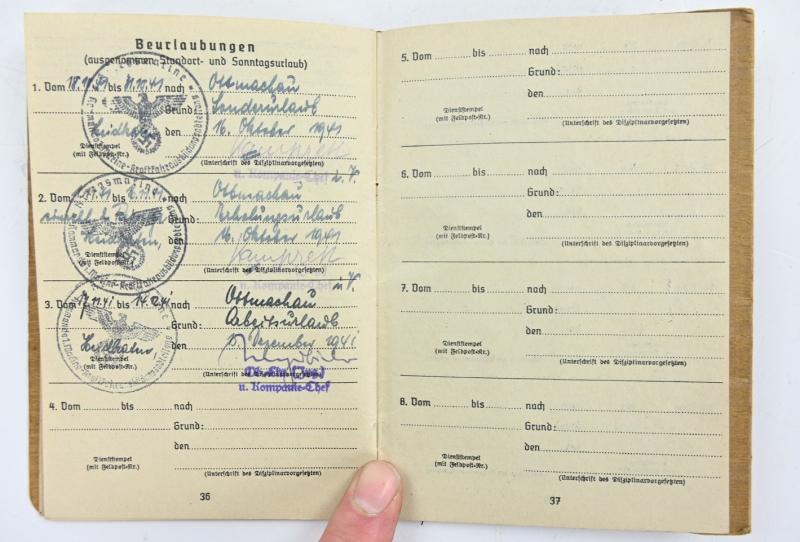 Beurlaubungen
(ausgenommen Standort- und Sonntagsurlaub)
1. Vom bis 41 nach Ottmachau
Grund: Sonderurlaub
den 16. Oktober 1941
Dienststempel
(mit Feldpost-Nr.)
(Unterschrift des Disziplinarvorgesetzten)
u. Kompanie-Chef
2. Vom bis nach Ottmachau
Grund: Erholungsurlaub
den 16. Oktober 1941
Dienststempel
(mit Feldpost-Nr.)
(Unterschrift des Disziplinarvorgesetzten)
u. Kompanie-Chef
3. Vom bis nach Ottmachau
Grund: Arbeitsurlaub
Dezember 1941
Dienststempel
(mit Feldpost-Nr.)
u. Kompanie-Chef
4. Vom bis nach
Grund:
den
Dienststempel
(mit Feldpost-Nr.)
(Unterschrift des Disziplinarvorgesetzten)
36
5. Vom bis nach
Grund:
den
Dienststempel
(mit Feldpost-Nr.)
(Unterschrift des Disziplinarvorgesetzten)
6. Vom bis nach
Grund:
den
Dienststempel
(mit Feldpost-Nr.)
(Unterschrift des Disziplinarvorgesetzten)
7. Vom bis nach
Grund:
den
Dienststempel
(mit Feldpost-Nr.)
(Unterschrift des Disziplinarvorgesetzten)
8. Vom bis nach
Grund:
den
Dienststempel
(mit Feldpost-Nr.)
(Unterschrift des Disziplinarvorgesetzten)
37